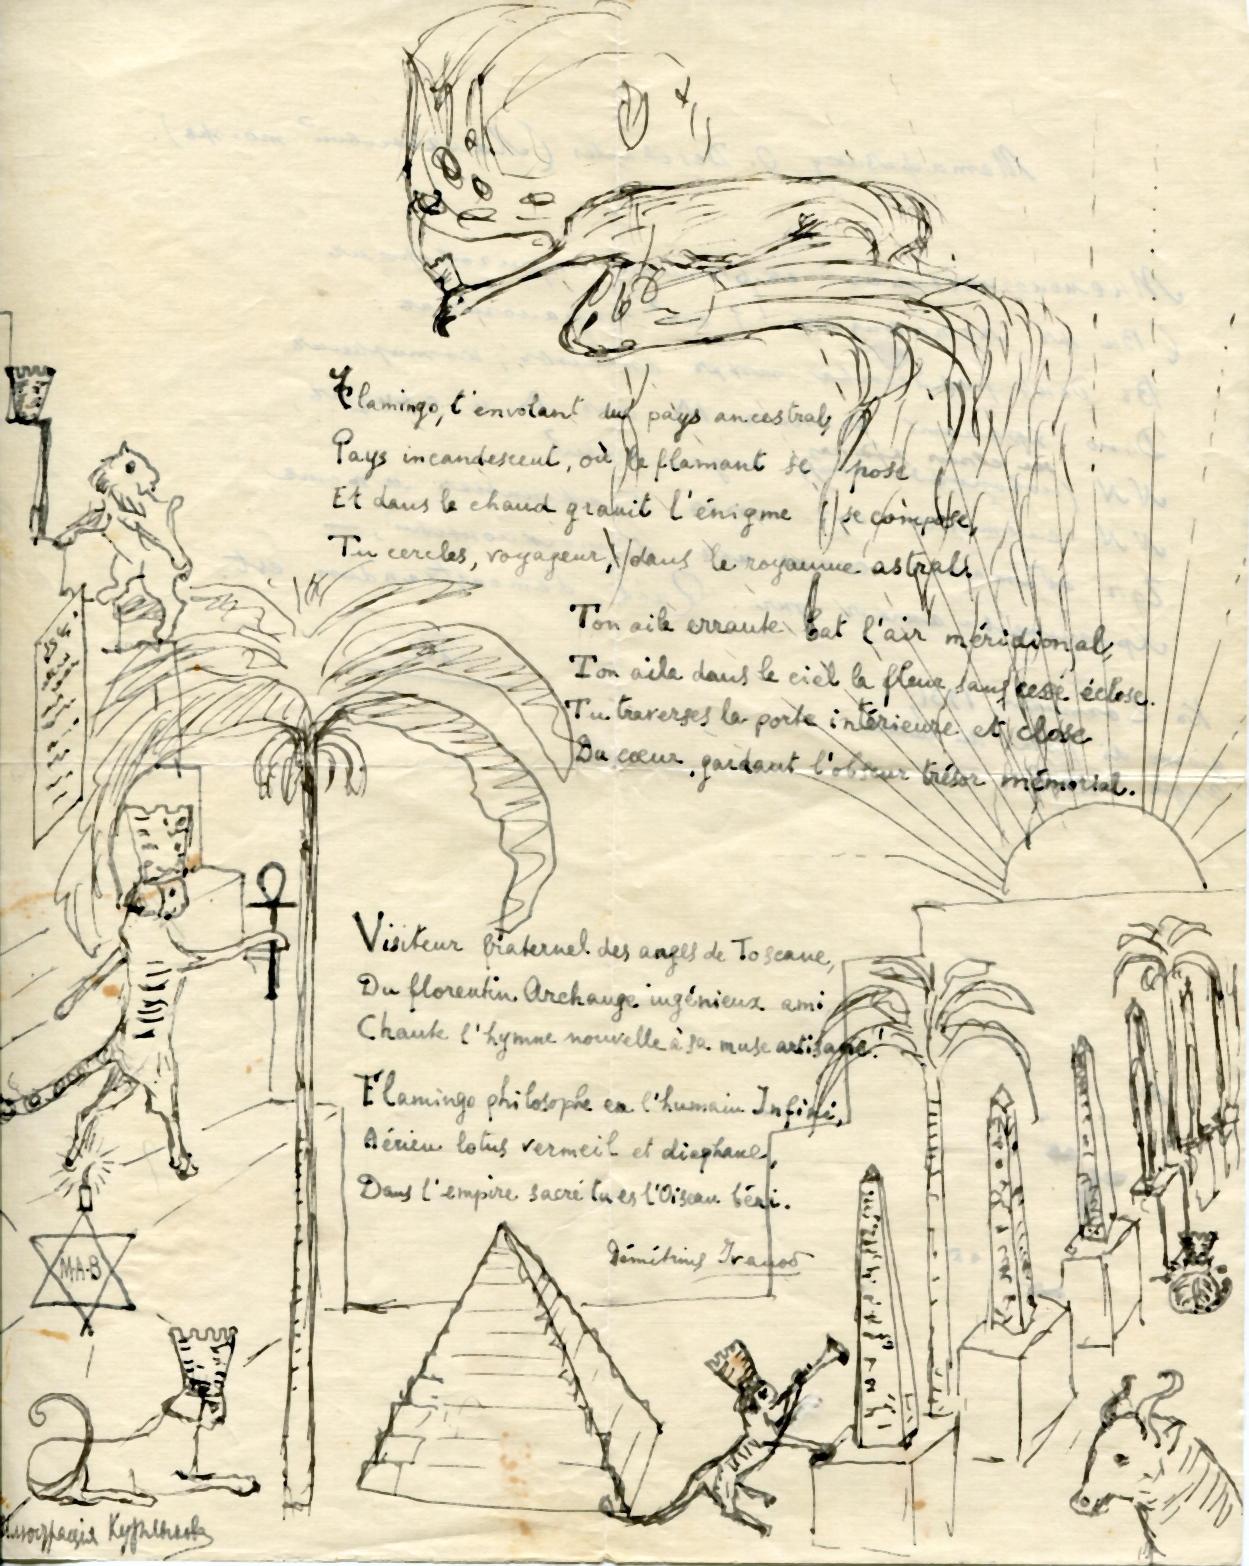 Flamingo, t'envolant du pays ancestral,
Pays incandescent, où le flamant se pose
Et dans le chaud granit l'énigme se compose,
Tu cercles, voyageur, dans le royaume astral.
Ton aile errante bat l'air méridional,
Ton aile dans le ciel la fleur sans cesse éclose.
Tu traverses la porte intérieure et close
Du cœur, gardant l'obscur trésor mémorial.
Visiteur fraternel des anges de Toscane,
Du florentin Archange ingénieux ami
Chante l'hymne nouvelle à sa muse artisane!
Flamingo philosophe en l'humain Infini,
Aérien lotus vermeil et diaphane,
Dans l'empire sacré tu es l'Oiseau béni.
Démétrius Ivanov
MA-B